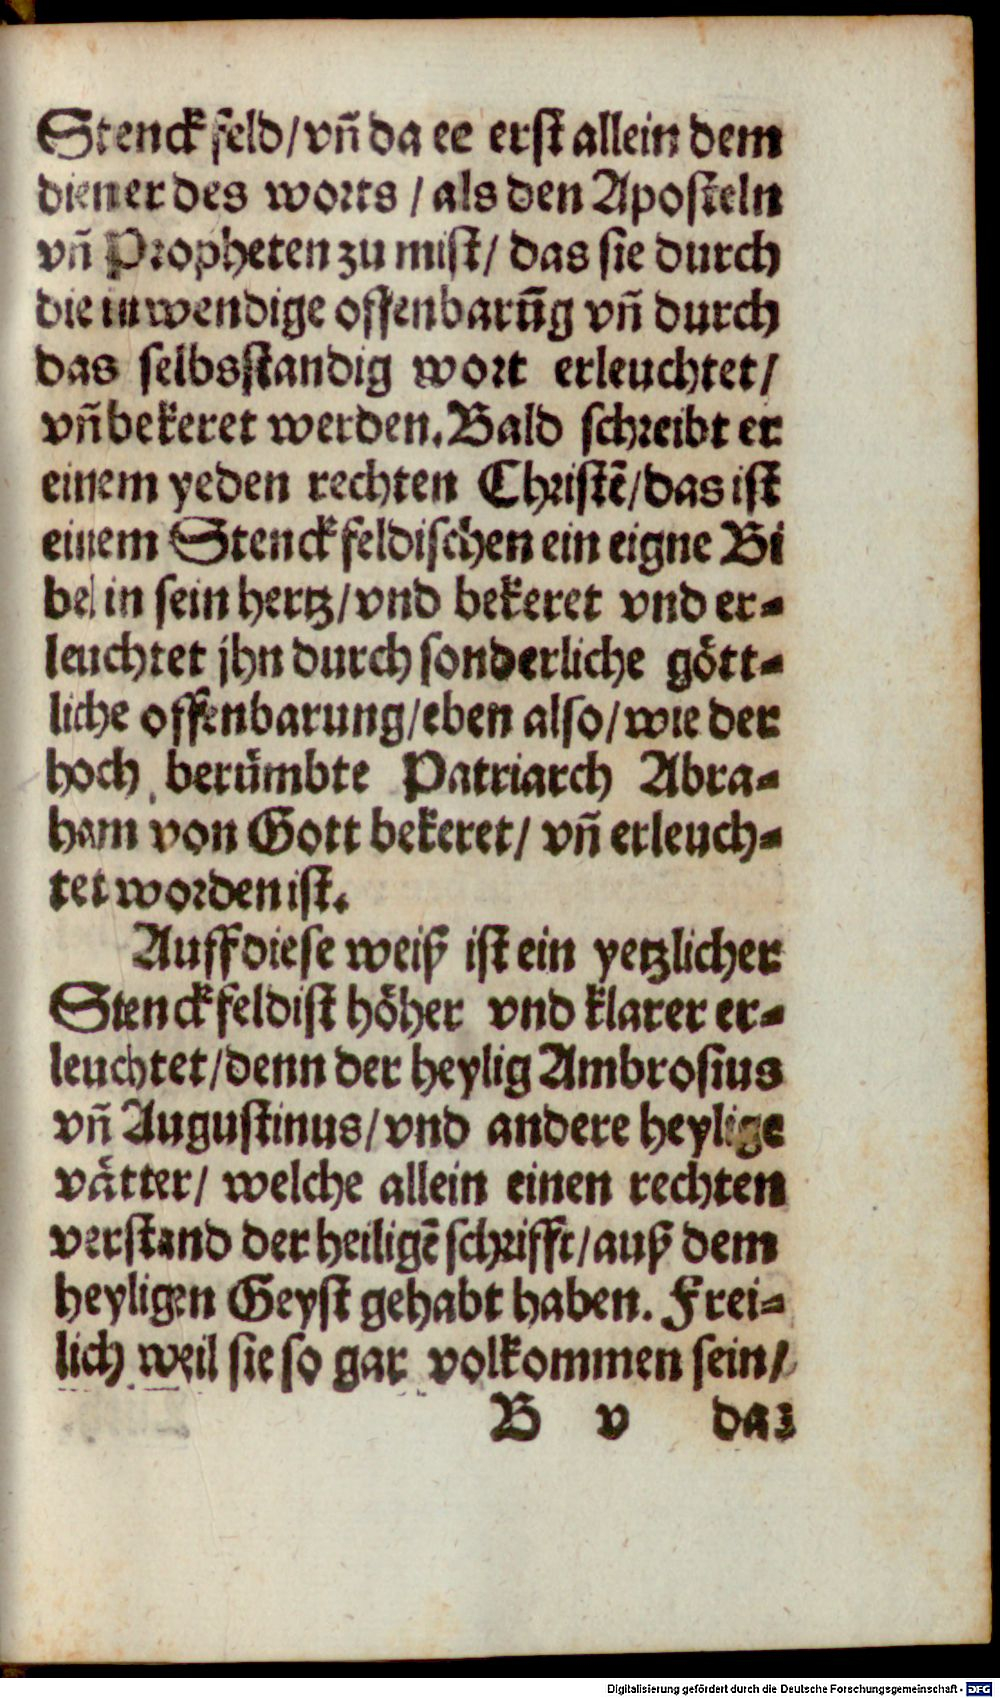 Stenckfeld/vn̄ da ee erst allein dem
diener des worts / als den Aposteln
vn̄ Propheten zu mist/ das sie durch
die inwendige offenbarūg vn̄ durch
das selbsstandig wort erleuchtet/
vn̄ bekeret werden. Bald schreibt er
einem yeden rechten Christē/das ist
einem Stenckfeldischen ein eigne Bi
bel in sein hertz/vnd bekeret vnd er-
leuchtet jhn durch sonderliche gött-
liche offenbarung/eben also/wie der
hoch berümbte Patriarch Abra-
ham von Gott bekeret/ vn̄ erleuch-
tet worden ist.
Auff diese weiß ist ein yetzlicher
Stenckfeldist höher vnd klarer er-
leuchtet/denn der heylig Ambrosius
vn̄ Augustinus/vnd andere heylige
vätter/ welche allein einen rechten
verstand der heiligē schrifft/auß dem
heyligen Geyst gehabt haben. Frei-
lich weil sie so gar volkommen sein/
B v daz
Digitalisierung gefördert durch die Deutsche Forschungsgemeinschaft - DFG